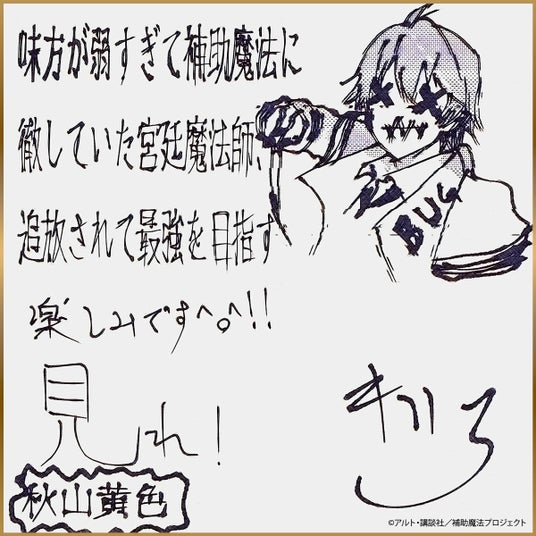 味方が弱すぎて補助魔法に
徹していた宮廷魔法師、
追放されて最強を目指す
BUG
楽しみです^o^!!
見れ!
きいろ
秋山黄色
©アルト・講談社/補助魔法プロジェクト